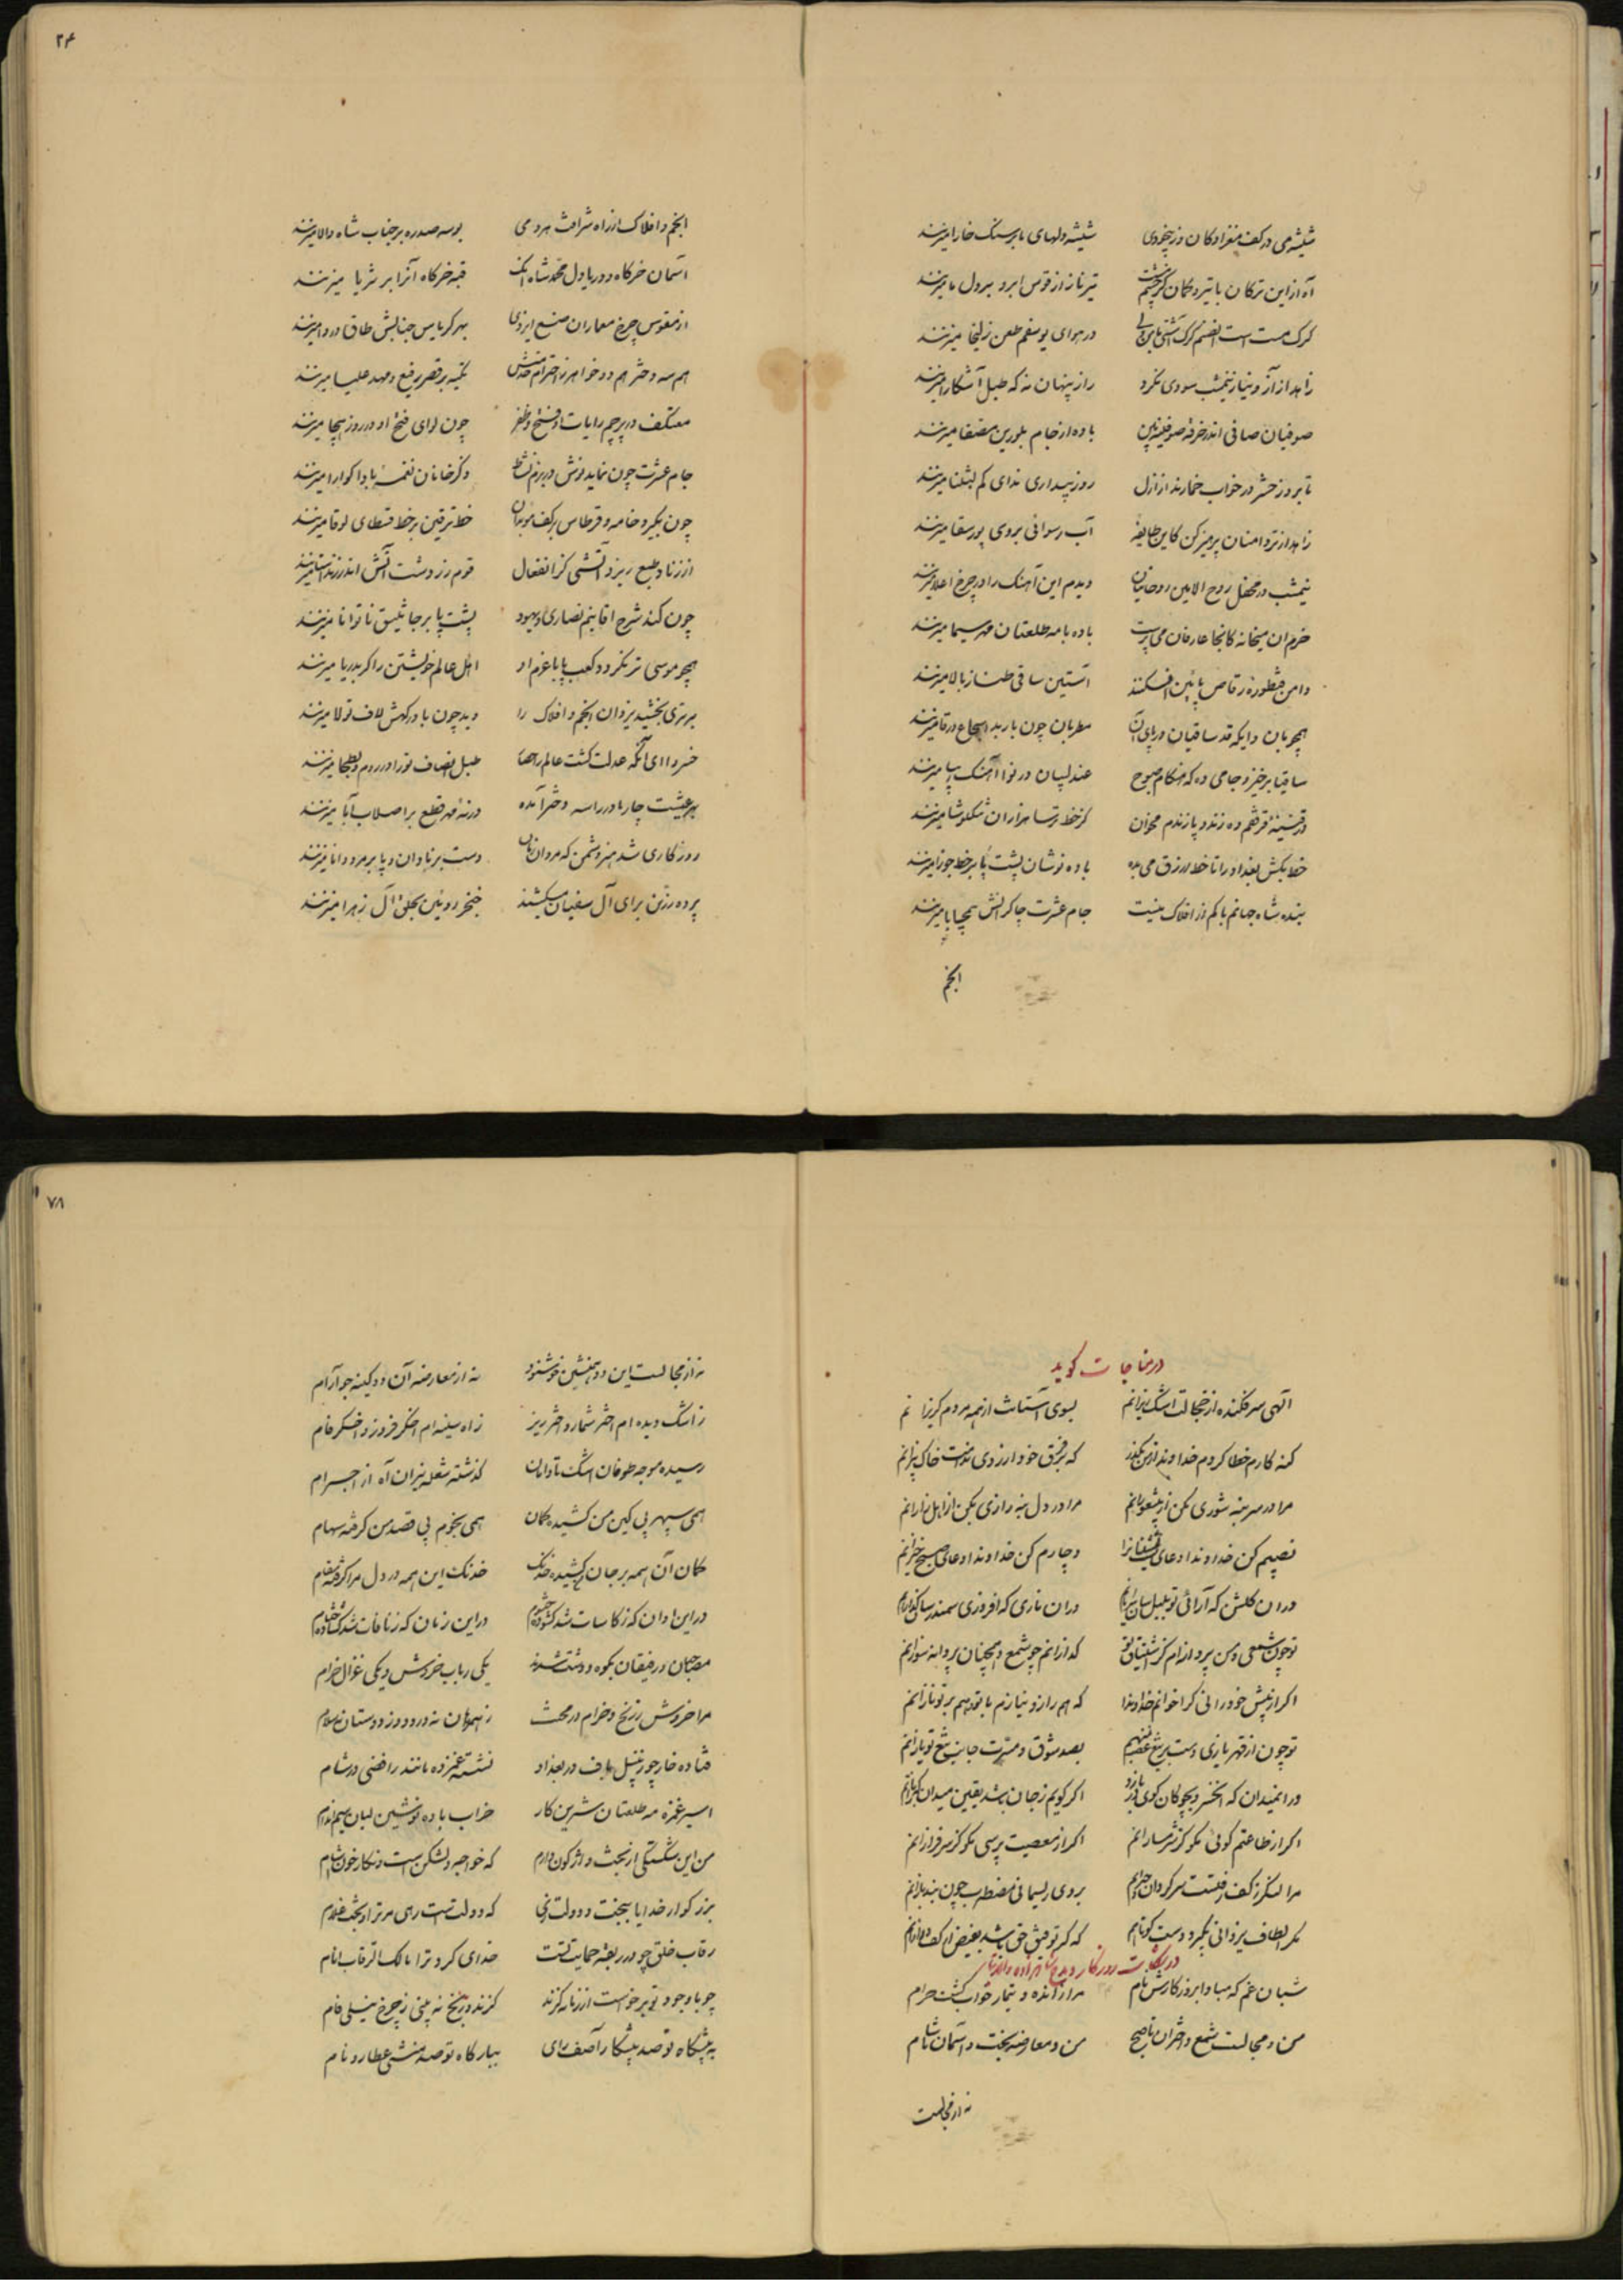 شیشه می در کف مغزادکان وز بیخودی شیشه دلهای ما بر سنک خارا میزنند
آه از این ترکان با تیر و کمان کز چشم تیر نازند از قوس ابرو بر دل ما میزنند
کرک مست است در هوای یوسفم طعن زلیخا میزنند
زاهد از آز و نیاز نیمشب سودی نکرد راز پنهان نه که طبل آشکارا میزنند
صوفیان صافی اندر خرقه صوف باده از جام بلورین مصفا میزنند
تا بروز حشر در خواب خمارند از ازل روز بیداری ندای کم لبثنا میزنند
زاهد از تردامنان پرهیز کن کاین طایفه آب رسوائی بروی پور سقا میزنند
نیمشب در محفل روح الامین روحانیان دیدم این آهنک را در چرخ اعلا میزنند
خرم ان میخانه کانجا عارفان می پرست باده با مه طلعتان مهر سیما میزنند
دامن رقاص پایین افکنند آستین ساقی طناز بالا میزنند
همچو بان دایکه قد ساقیان در پای آن مطربان چون باربد اسجاع ورقا میزنند
ساقیا برخیز و جامی ده که هنکام صبوح عندلیبان در نوا آهنک میزنند
ده زند و پازندم مخوان کز خط ترسا هزاران میزنند
خط بکش بغداد را تا خط ازرق می بده باده نوشان پشت پا بر خط جوزا میزنند
بنده شاه جهانم باکم از افلاک نیست جام عشرت چاکرانش میزنند
انجم
۲۴
انجم و افلاک از راه شرافت هر دمی بوسه صدره بر جناب شاه والا میزنند
آسمان خرکاه و دریا دل محمد شاه قبه خرکاه آنرا بر ثریا میزنند
از مقوس چرخ معماران صنع ایزدی بهر کریاس جنابش طاق میزنند
هم سه دختر هم دو خواهر ز احترام تکیه بر قصر رفیع و مهد علیا میزنند
معتکف در پرچم رایات او فتح و ظفر چون لوای فتح او در روز هیجا میزنند
جام عشرت چون نماید نوش در بزم نشاط ذکر خانان نغمه میزنند
چون بکیرد خامه و قرطاس بر کف خط ترقین بر خط قسطای لوقا میزنند
از زناد طبع ریزد آتشی کز انفعال قوم زردشت آتش اندر زند استا میزنند
چون کند شرح اقانیم نصاری و یهود پشت پا بر جاثلیق ناتوانا میزنند
همچو موسی تر نکردد کعب پا با عزم او اهل عالم خویشتن را کر بدریا میزنند
برتری بخشید یزدان انجم و افلاک را دید چون با درکهش لاف تولا میزنند
خسروا ای آنکه عدلت کشت عالم را طبل انصاف تو را در روم و بطحا میزنند
بهر عیشت چار مادر را سه دختر آمده ورنه مهر قطع بر اصلاب آبا میزنند
روزکاری شد هنر دشمن که مردان زمان دست بر نادان و پا بر مرد دانا میزنند
پرده زرین برای آل سفیان میکشند خنجر روئین بحلق آل زهرا میزنند
در مناجات کوید
آلهی سر فکنده از خجالت اشک ریزانم بسوی آستانت از همه مردم کریزانم
کنه کارم خطا کردم خداوندا ز من بکذر که بر فرق خود از روی ندامت خاک بیزانم
مرا در سر بنه شوری مکن از بیشعورانم مرا در دل بنه رازی بکن از اهل رازانم
نصیبم کن خداوندا دعای دچارم کن خداوندا دعای صبح خیزانم
در ان کلشن که آرائی تو بلبل سان در ان ناری که افروزی سمندر سا
تو چون شمعی و من پروانه ام کز اشتیاق تو کدازانم چو شمع و همچنان پروانه سوزانم
اکر از پیش خود رانی کرا خوانم خداوندا که هم راز و نیازم با تو و هم بر تو نازانم
تو چون از قهر یازی دست بر تیغ بصد شوق و مسرت جانب تیغ تو یازانم
در انمیدان که اکر کویم ز جان باشد یقین میدان
اکر از طاعتم کوئی مکو کز شرمسارانم اکر از معصیت پرسی مکو کز سرفرازانم
مرا لنکر ز کف رفتست سرکردان بروی ریسمانی مضطرب چون بندبازانم
مکر الطاف یزدانی بکیرد دست کوتاهم که کر توفیق حق باشد
در شکایت روزکار و مدح شاهزاده
شبان غم که مبادا بروزکارش نام مرا ز انده و تیمار خواب کشت حرام
من و مجالست شمع و اختران تا صبح من و معارضه بخت و آسمان تا شام
نه از مجالست
۷۸
نه از مجالست این دو همنشین خوشنود نه از معارضه آن دو کینه جو آرام
ز اشک دیده ام اختر شمار و اختر ریز ز آه سینه ام اخکر فروز و اخکر فام
رسیده موجه طوفان اشک تا دامان کذشته شعله نیران آه از اجرام
همی سپهر پی کین من کشیده کمان همی نجوم پی قصد من کرفته سهام
کمان آن همه بر جان کشیده خدنک خدنک این همه در دل مرا کرفته مقام
در این اوان که ز کاسات شد در این زمان که ز نافات شد
مصاحبان و رفیقان بکوه و دشت شدند یکی رباب خروش و یکی غزال خرام
مرا خروش ز رنج و خرام در محنت ز همرهان نه درود و ز دوستان نه سلام
فتاده خار چو زنبیل باف در بغداد نشسته غمزده مانند رافضی در شام
اسیر غمزه مه طلعتان شیرین کار خراب باده نوشین لبان سیم اندام
من این شکستکی از بخت واژکون دارم که خواجه دلشکن است و نکار خون آشام
بزرکوار خدایا ببخت و دولت که دولتست رهی مر ترا و بخت غلام
رقاب خلق چو در ربقه حمایت تست خدای کرد ترا مالک الرقاب انام
چو با وجود تو برخواست از زمانه کزند کزند و رنج نه بینی ز چرخ نیلی فام
به پیشکاه تو صد پیشکار آصف رای ببارکاه تو صد منشی عطارد نام